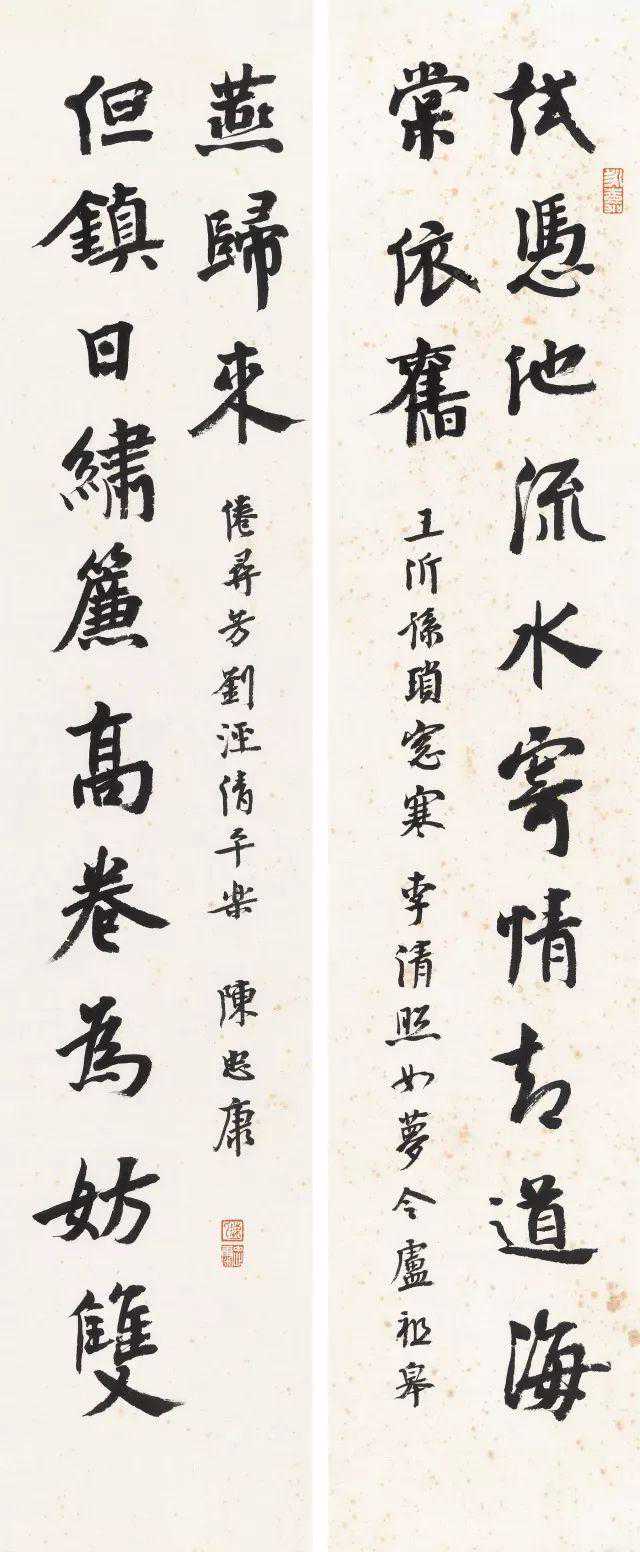 試憑他流水寄情却道海
棠依舊
王沂孫瑣窓寒 李清照如夢令盧祖皋
但鎮日繡簾高卷為妨雙
燕歸來
倦尋芳劉涇清平樂 陳忠康